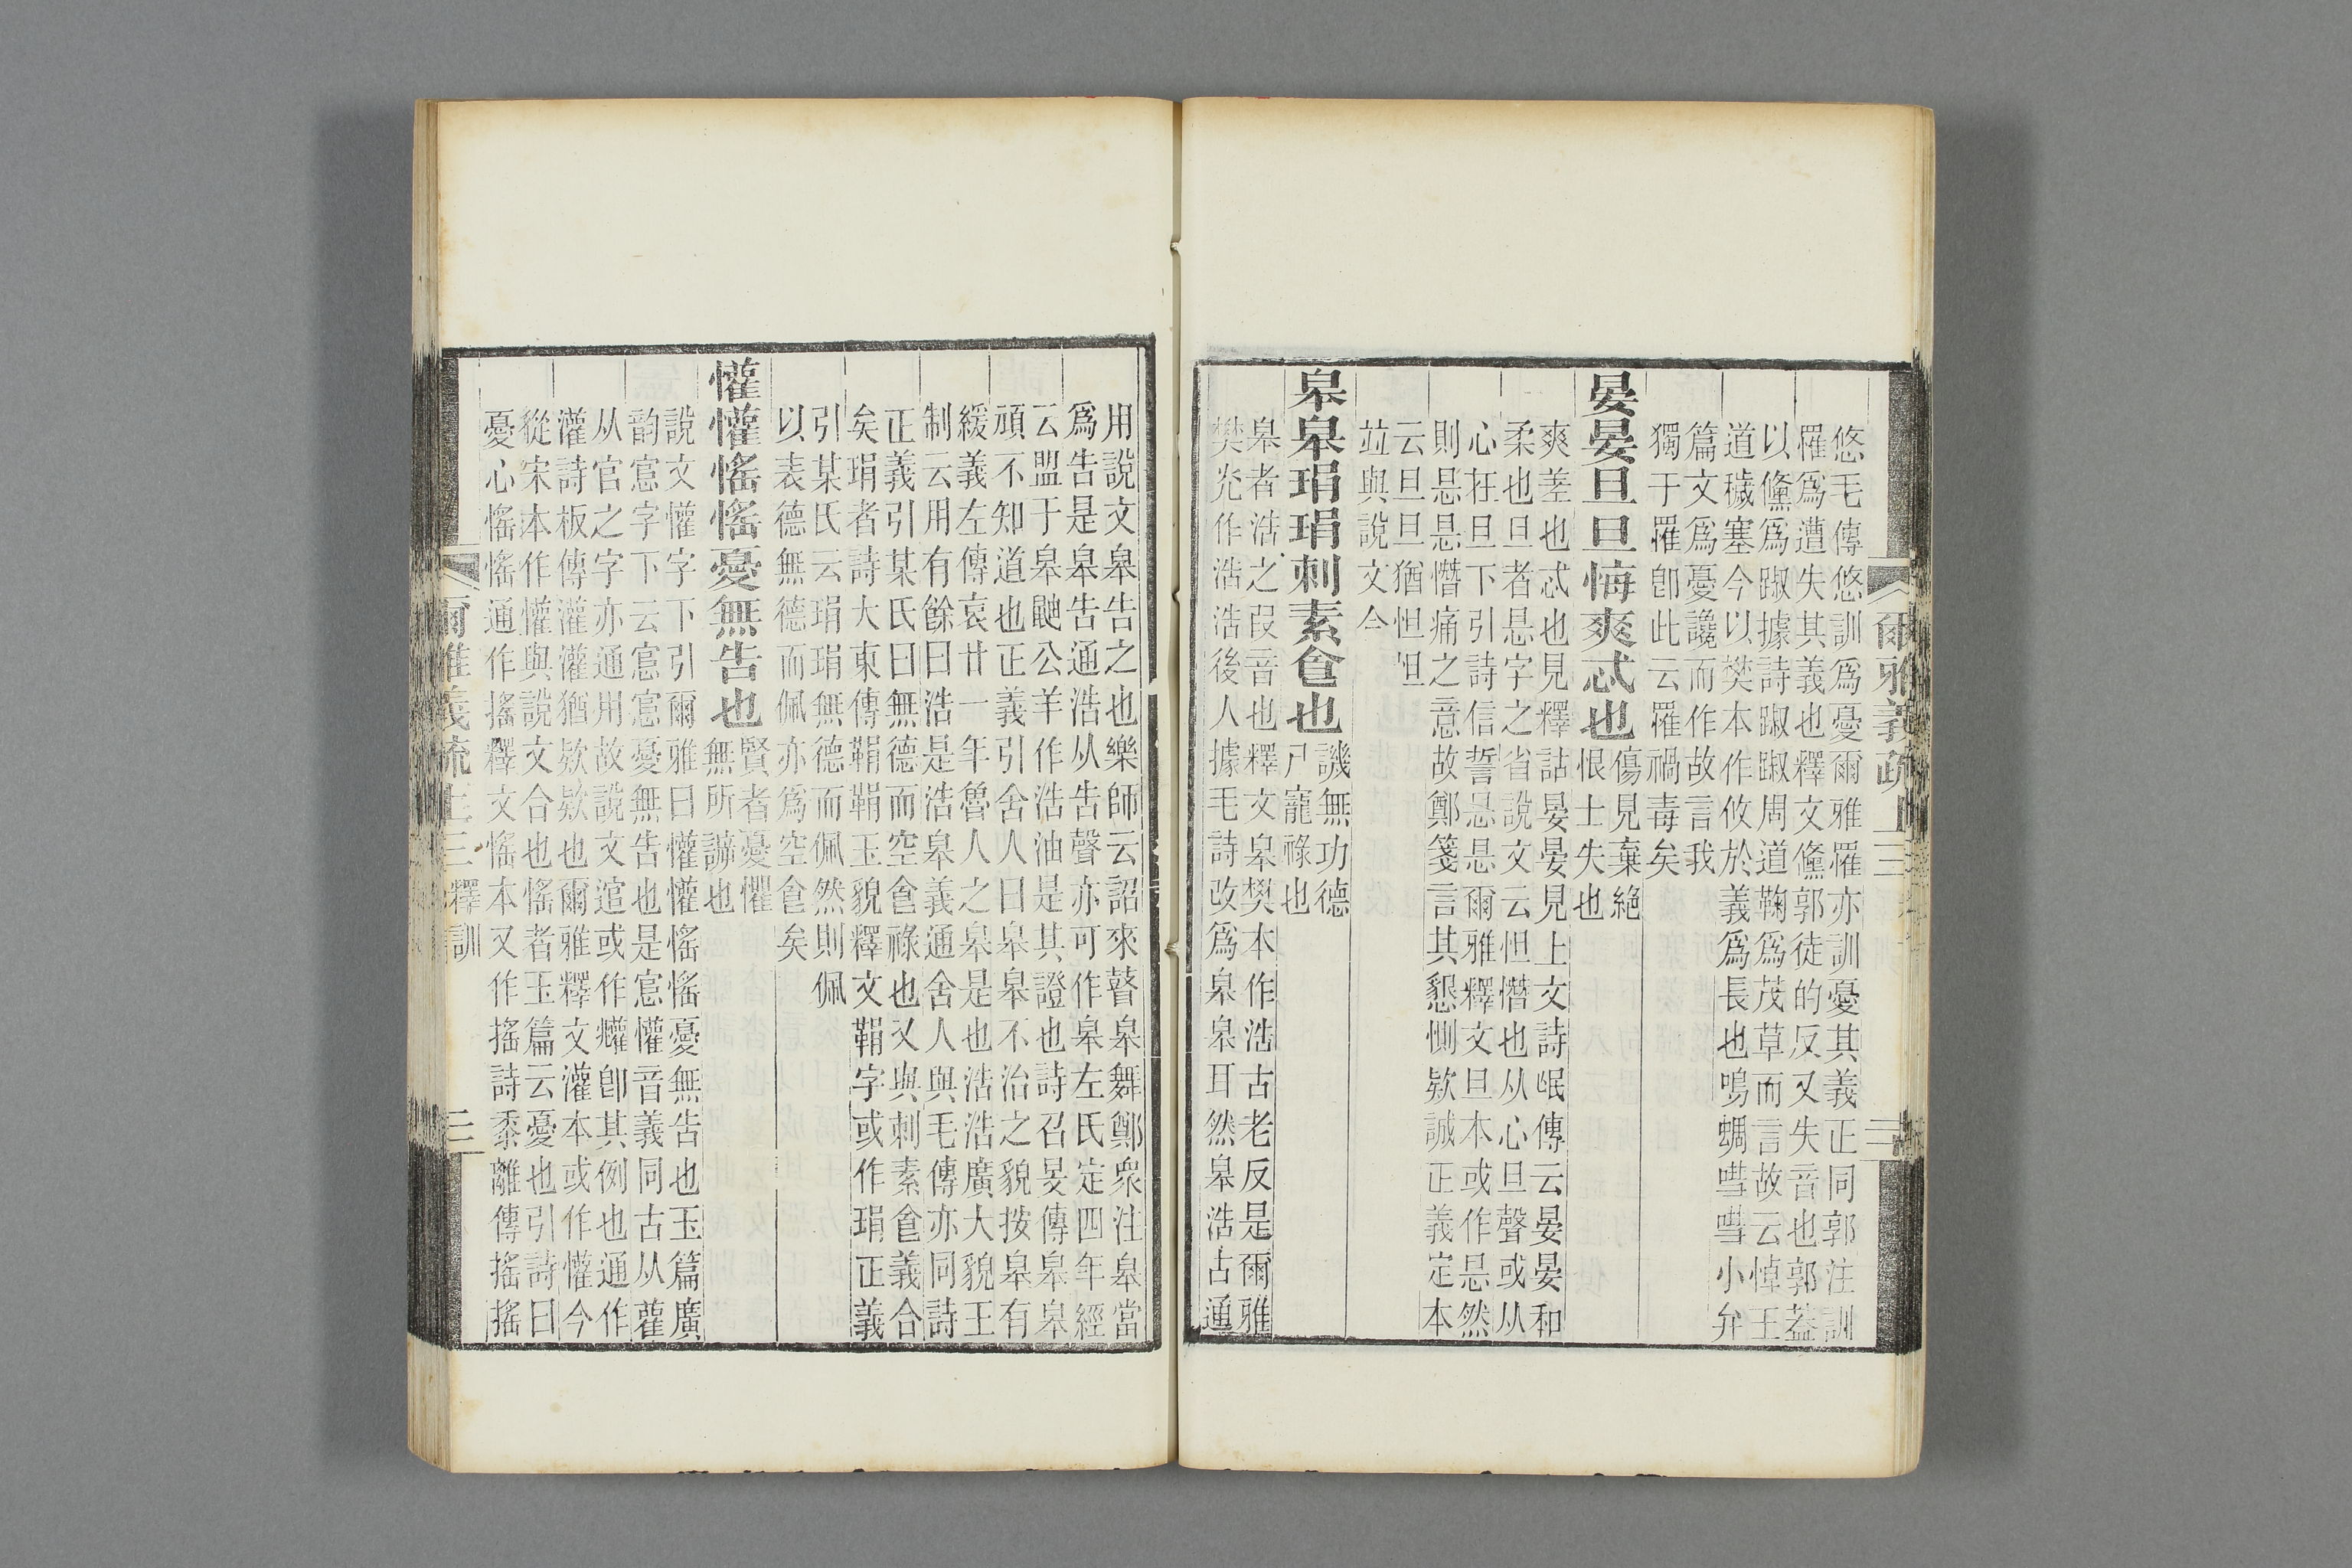 爾雅義疏上三　三
悠毛傳悠訓爲憂爾雅罹亦訓憂其義正同郭注訓
罹爲遭失其義也釋文儵郭徒的反又失音也郭葢
以儵爲踧據詩踧踧周道鞠爲茂草而言故云悼王
道穢塞今以樊本作攸於義爲長也鳴蜩嘒嘒小弁
篇文爲憂讒而作故言我
獨于罹卽此云罹禍毒矣
晏晏旦旦悔爽忒也
傷見棄絕
恨士失也
爽差也忒也見釋詁晏晏見上文詩氓傳云晏晏和
柔也旦者悬字之省說文云怛憯也从心旦聲或从
心在旦下引詩信誓悬悬爾雅釋文旦本或作悬然
則悬悬憯痛之意故鄭箋言其懇惻欵誠正義定本
云旦旦猶怛怛
竝與說文合
皋皋琄琄刺素食也
譏無功德
尸寵祿也
皋者浩之叚音也釋文皋樊本作浩古老反是爾雅
樊光作浩浩後人據毛詩改爲皋皋耳然皋浩古通
用說文皋告之也樂師云詔來瞽皋舞鄭衆注皋當
爲告是皋告通浩从告聲亦可作皋左氏定四年經
云盟于皋鼬公羊作浩油是其證也詩召旻傳皋皋
頑不知道也正義引舍人曰皋皋不治之貌按皋有
緩義左傳哀廿一年魯人之皋是也浩浩廣大貌王
制云用有餘曰浩是浩皋義通舍人與毛傳亦同詩
正義引某氏曰無德而空食祿也又與刺素食義合
矣琄者詩大東傳鞙鞙玉貌釋文鞙字或作琄正義
引某氏云琄琄無德而佩然則佩
以表德無德而佩亦爲空食矣
懽懽愮愮憂無告也
賢者憂懼
無所訴也
說文懽字下引爾雅曰懽懽愮愮憂無告也玉篇廣
韵悹字下云悹悹憂無告也是悹懽音義同古从雚
从官之字亦通用故說文逭或作爟卽其例也通作
灌詩板傳灌灌猶欵欵也爾雅釋文灌本或作懽今
從宋本作懽與說文合也愮者玉篇云憂也引詩曰
憂心愮愮通作搖釋文愮本又作搖詩黍離傳搖搖
爾雅義疏上三釋訓　三